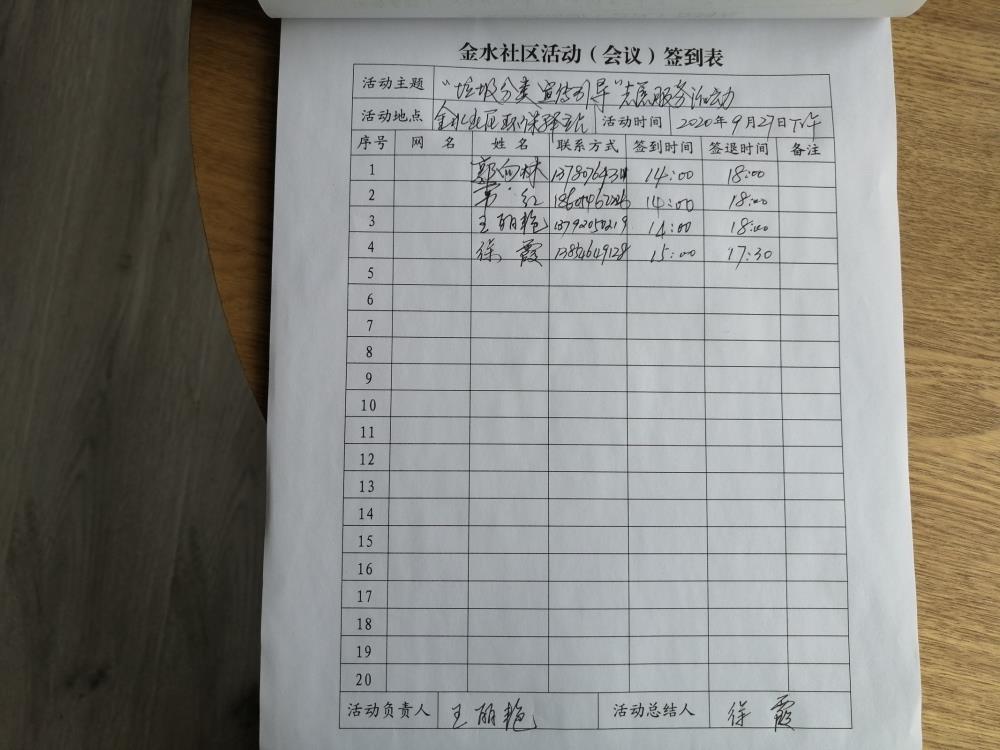 金水社区活动（会议）签到表
活动主题 “垃圾分类宣传引导”志愿服务活动
活动地点 金水社区 活动时间 2020年9月27日下午
序号 网名 姓名 联系方式 签到时间 签退时间 备注
1 郭 林 14:00 18:00
2 红 14:00 18:00
3 王丽艳 13792050219 14:00 18:00
4 徐霞 15:00 17:30
5
6
7
8
9
10
11
12
13
14
15
16
17
18
19
20
活动负责人 王丽艳 活动总结人 徐霞